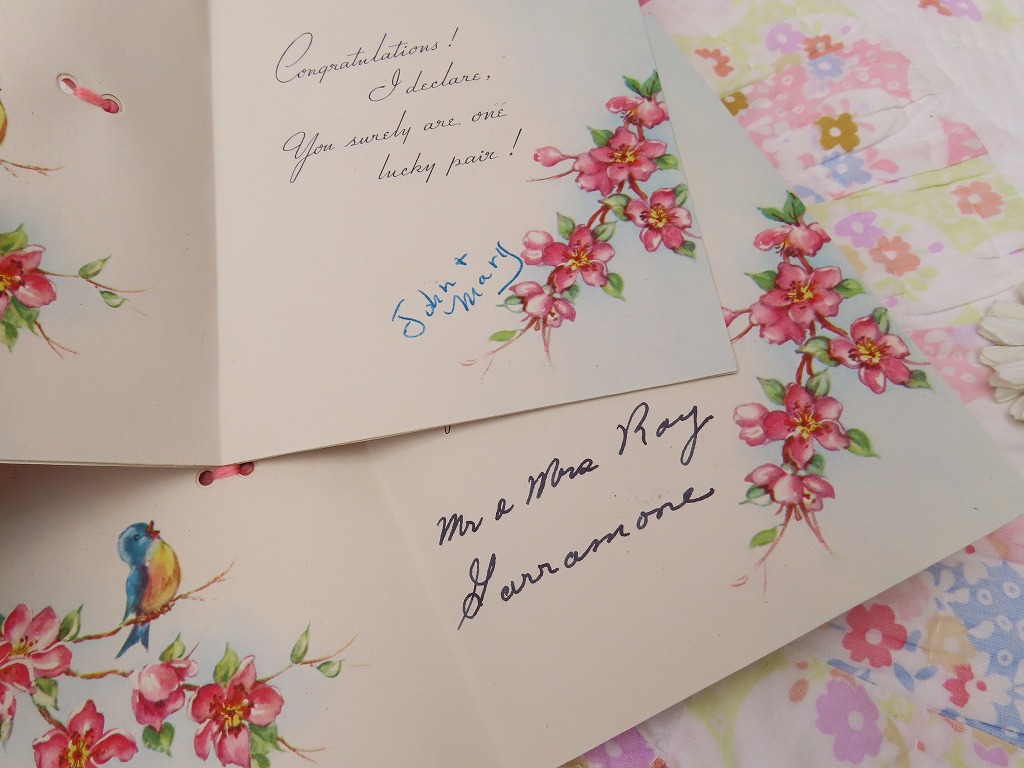 Congratulations!
I declare,
You surely are one
lucky pair!
John +
Mary
Mr & Mrs Ray
Garramone